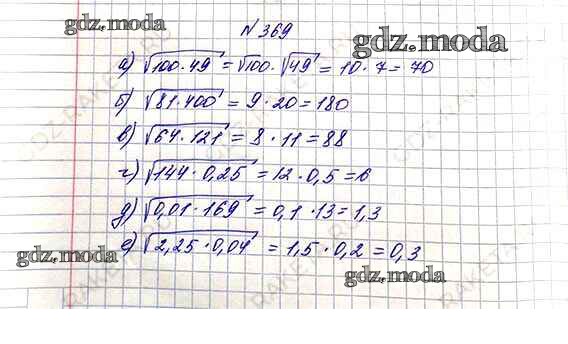 gdz.moda
№ 369
gdz.moda
а) √100·49 = √100·√49 = 10·7 = 70
б) √81·400 = 9·20 = 180
в) √64·121 = 8·11 = 88
г) √144·0,25 = 12·0,5 = 6
д) √0,01·169 = 0,1·13 = 1,3
е) √2,25·0,04 = 1,5·0,2 = 0,3
gdz.moda
gdz.moda